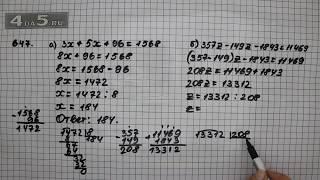 4DA5.RU
647. а) 3x + 5x + 96 = 1568
8x + 96 = 1568
8x = 1568 - 96
8x = 1472
x = 1472 : 8
x = 184
Ответ: 184.
б) 357z - 149z - 1843 = 11469
(357-149)z - 1843 = 11469
208z = 11469 + 1843
208z = 13312
z = 13312 : 208
z =
- 1568
96
1472
1472 | 8
8 184
67
64
32
32
0
- 357
149
208
+ 11469
1843
13312
13312 | 208